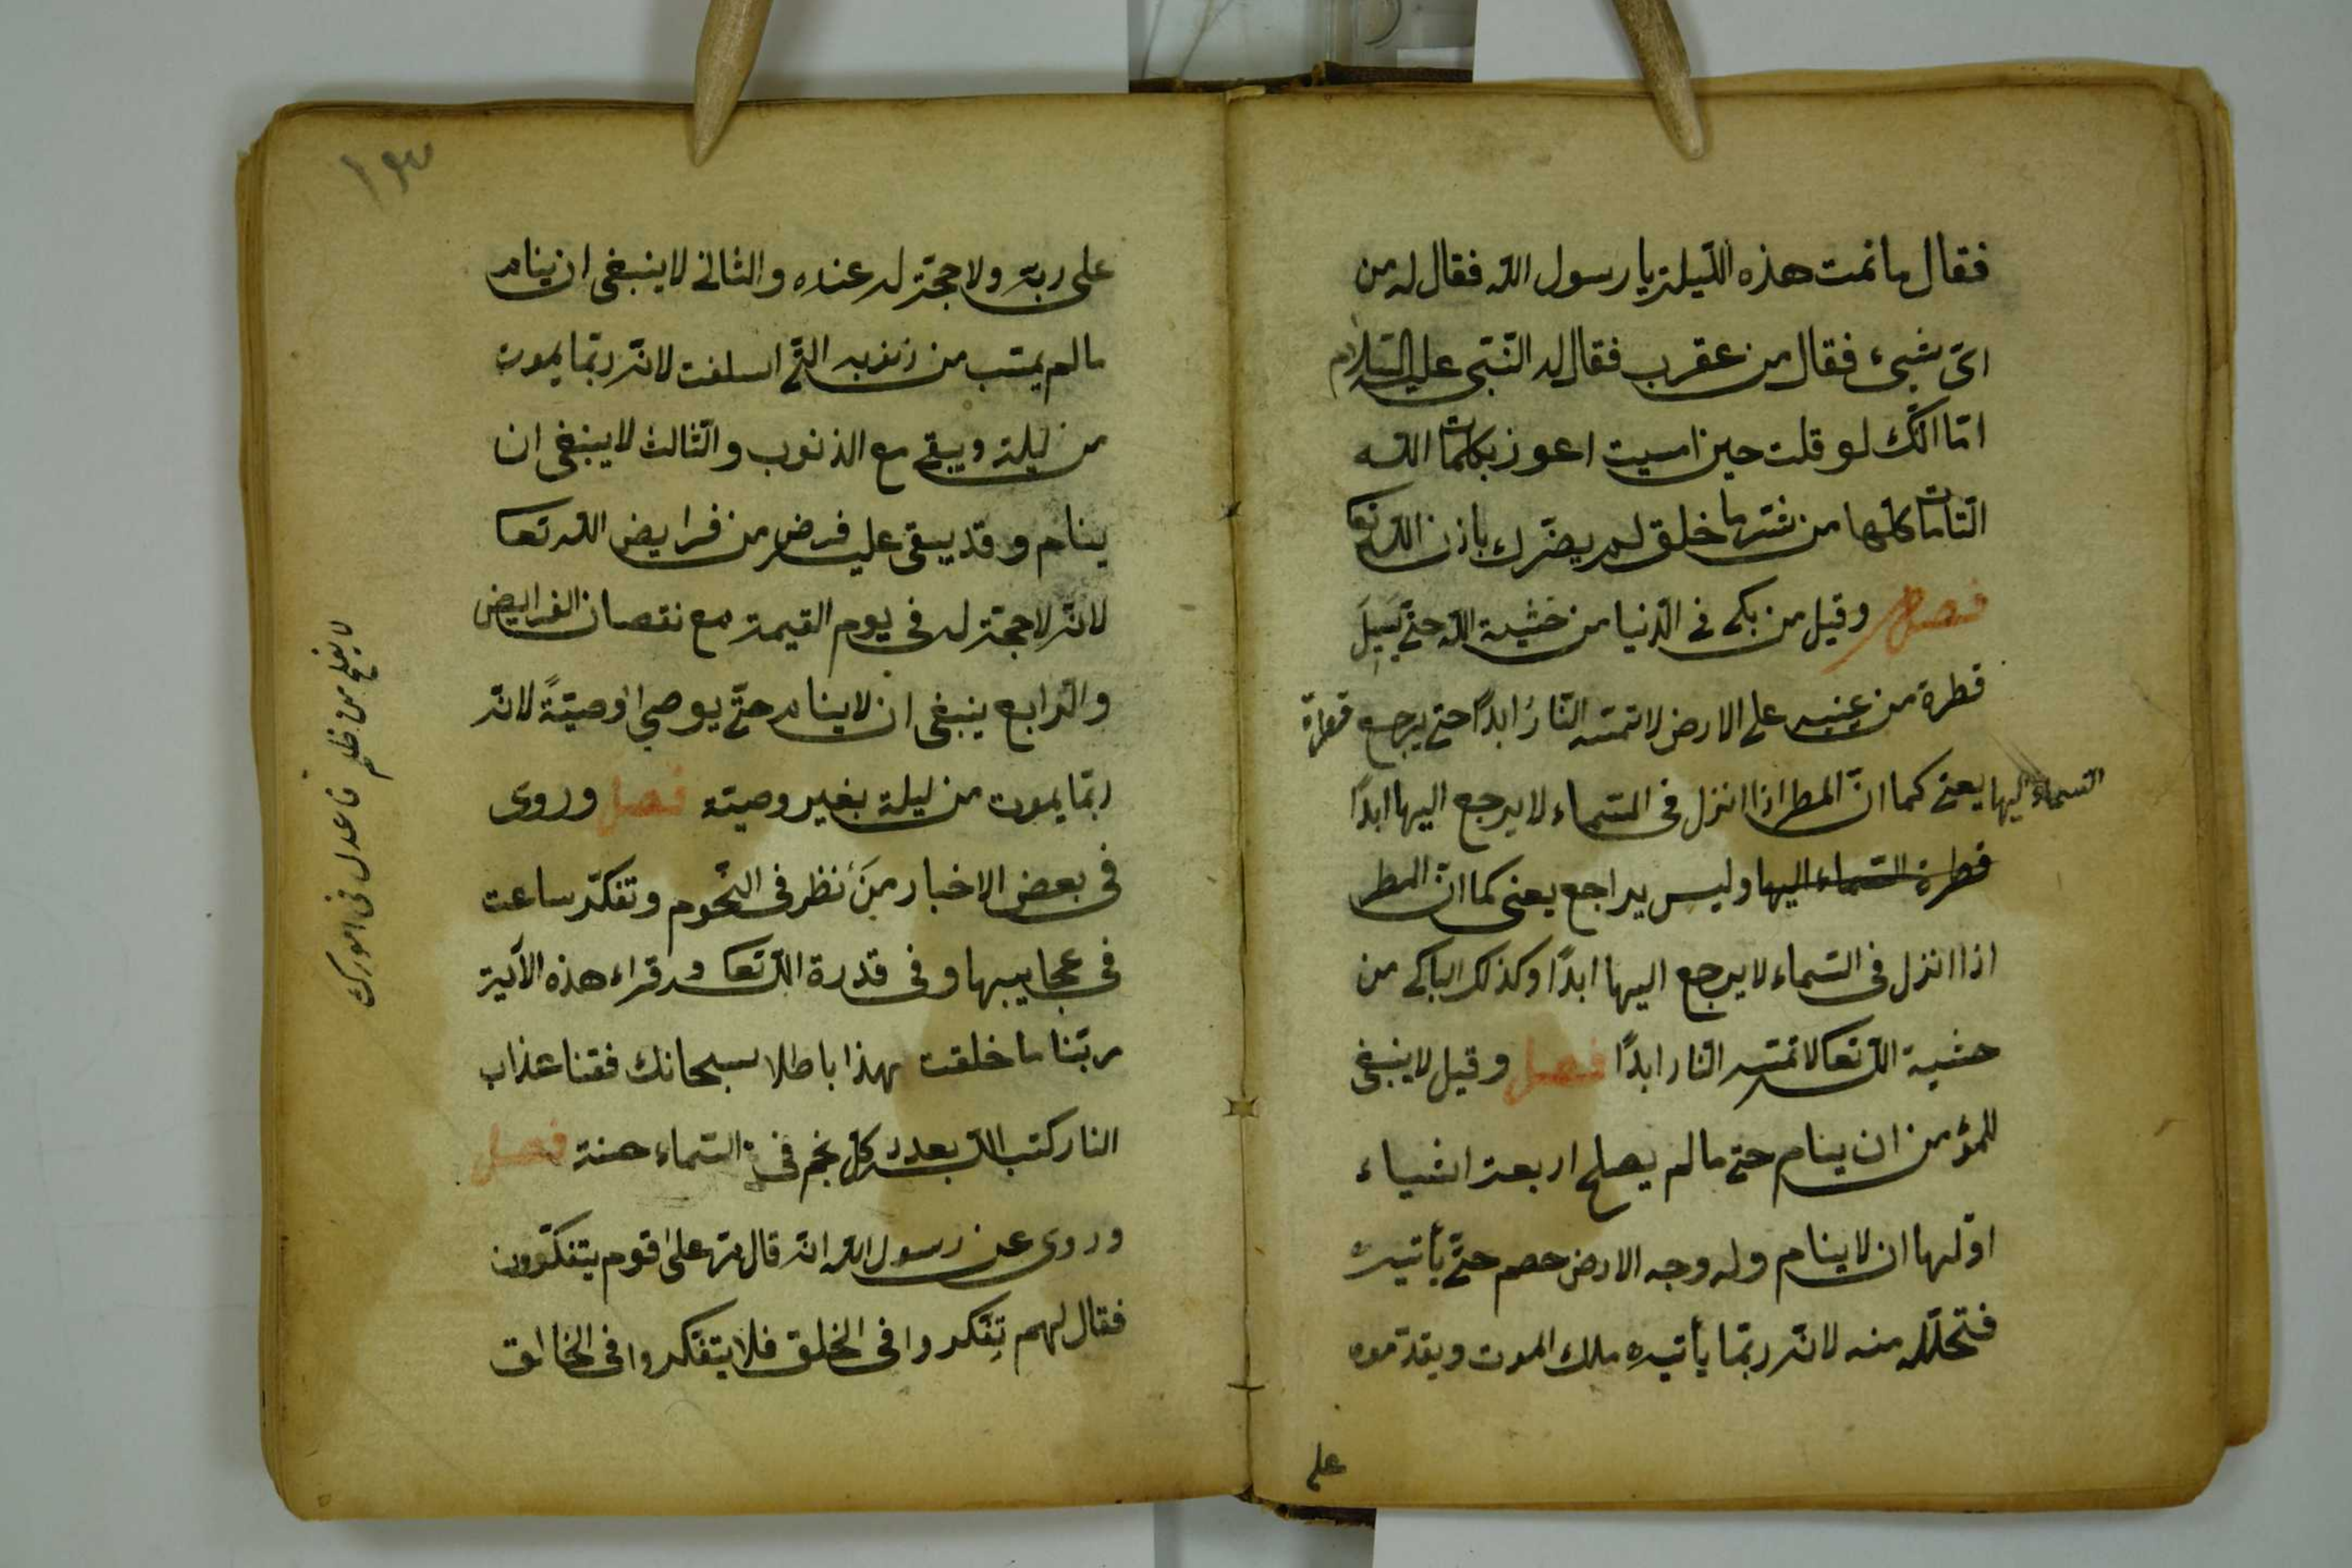 فقال ما نمت هذه الليلة يا رسول الله فقال له من
اىّ شيئ فقال من عقرب فقال له النّبى عليه السّلام
امّا انّك لو قلت حين امسيت اعوذ بكلمات الله
التّامات كلّها من شرّ ما خلق لم يضرّك باذن الله تعا
فصل وقيل من بكى فى الدّنيا من خشية الله حتّى يسيل
قطرة من عينيه على الارض لا تمسّه النّار ابدًا حتى يرجع قطرة
السماء اليها يعنى كما انّ المطر اذا انزل فى السّماء لا يرجع اليها ابدًا
قطرة السّماء اليها وليس يراجع يعنى كما انّ المطر
اذا انزل فى السّماء لا يرجع اليها ابدًا وكذلك الباكى من
خشية الله تعالا تمسّه النّار ابدًا فصل وقيل لا ينبغى
للمؤمن ان ينام حتى ما لم يصلح اربعة اشياء
اوّلها ان لا ينام وله وجه الارض خصم حتّى يأتيه
فتحلّله منه لانّه ربّما يأتيه ملك الموت ويقدّموه
على
١٣
على ربّه ولا حجّة له عنده والثانى لا ينبغى ان ينام
ما لم يتب من ذنوبه الّتى اسلفت لانّه ربّما يموت
من ليلة ويبقى مع الذنوب والثّالث لا ينبغى ان
ينام وقد يبقى عليه فرض من فرايض الله تعا
لانّه لا حجّة له فى يوم القيمة مع نقصان الفرايض
والرّابع ينبغى ان لا ينام حتّى يوصى اوصيّةً لانّه
ربّما يموت من ليلة بغير وصيّة فصل وروى
فى بعض الاخبار من نظر فى النّجوم وتفكّر ساعت
فى عجايبها وفى قدرة الله تعا وقراء هذه الآية
ربّنا ما خلقت هذا باطلا سبحانك فقنا عذاب
النار كتب الله بعدد كل نجم فى السّماء حسنة فصل
وروى عن رسول الله انّه قال مرّ على قوم يتفكّرون
فقال لهم تفكروا فى الخلق فلا يتفكّروا فى الخالق
لا يفلح من ظلم فاعدل فى امورك